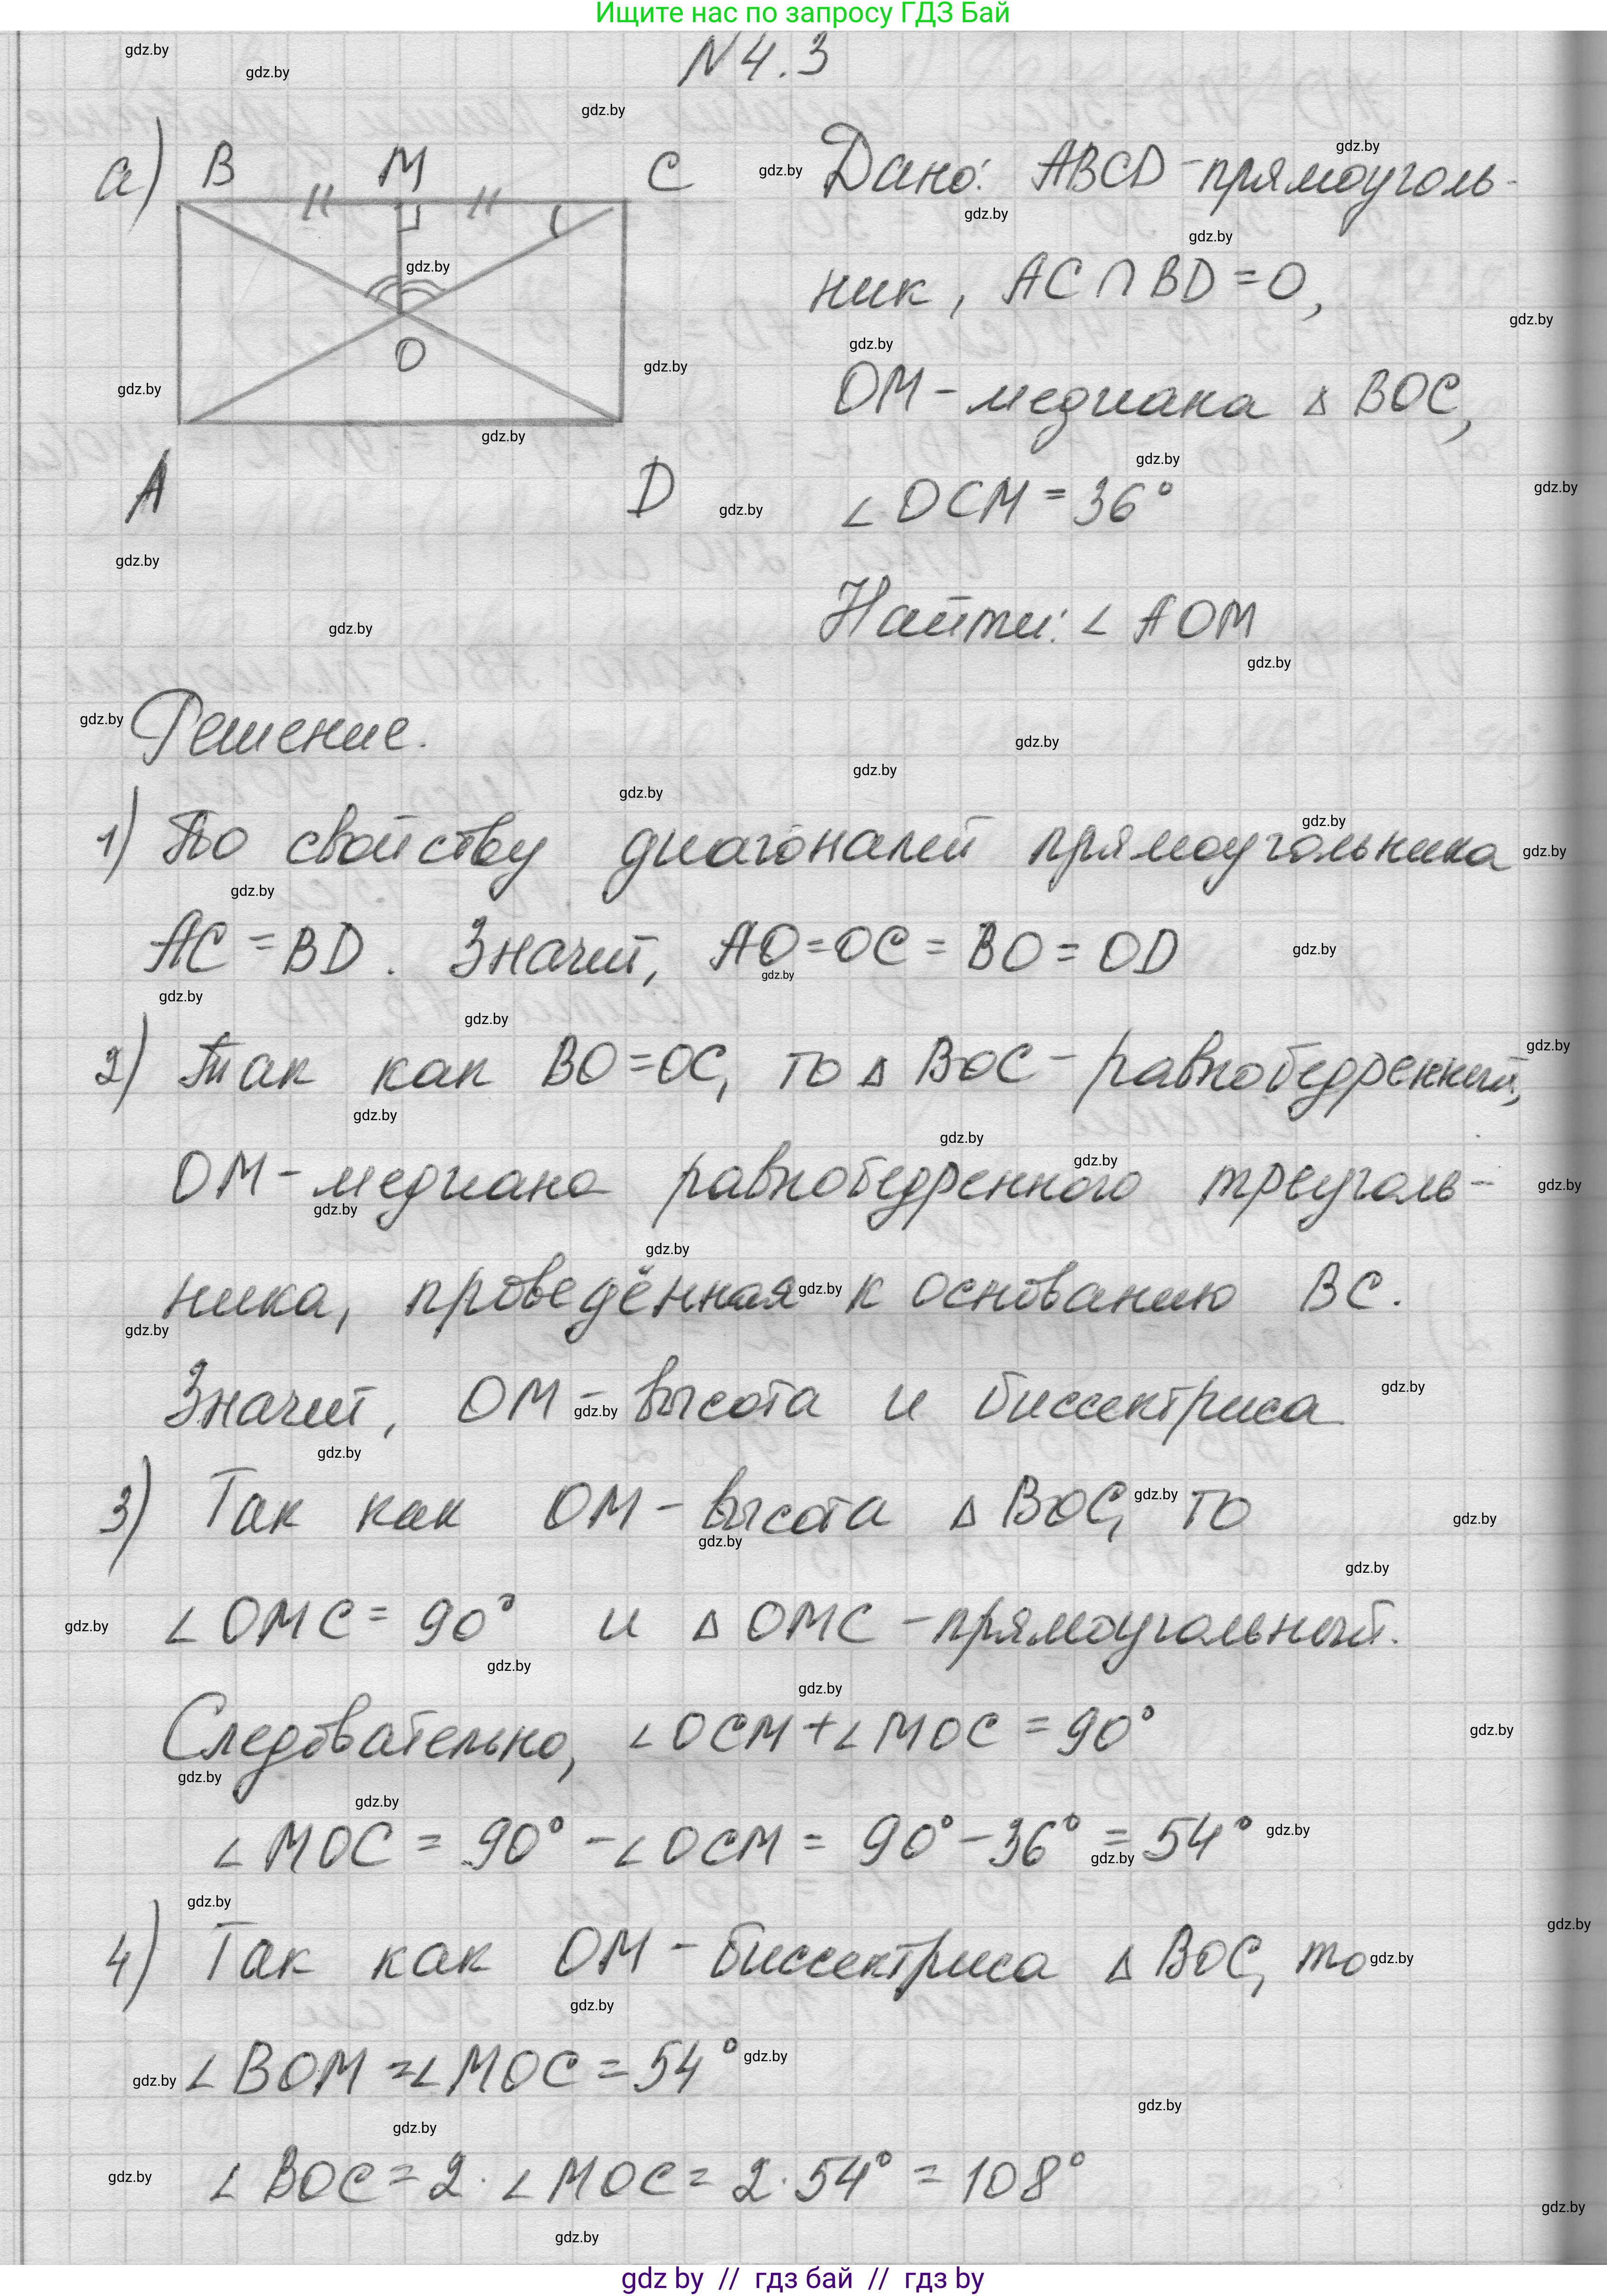 Ищите нас по запросу ГДЗ Бай
N 4.3
а) B M C
O
A D
Дано: ABCD - прямоуголь-
ник, AC ∩ BD = O,
OM - медиана ∆ BOC,
∠ OCM = 36°
Найти: ∠ AOM
Решение.
1) По свойству диагоналей прямоугольника
AC = BD. Значит, AO = OC = BO = OD
2) Так как BO = OC, то ∆ BOC - равнобедренный,
OM - медиана равнобедренного треуголь-
ника, проведённая к основанию BC.
Значит, OM - высота и биссектриса
3) Так как OM - высота ∆ BOC, то
∠ OMC = 90° и ∆ OMC - прямоугольный.
Следовательно, ∠ OCM + ∠ MOC = 90°
∠ MOC = 90° - ∠ OCM = 90° - 36° = 54°
4) Так как OM - биссектриса ∆ BOC, то
∠ BOM = ∠ MOC = 54°
∠ BOC = 2 · ∠ MOC = 2 · 54° = 108°
gdz by // гдз бай // гдз by